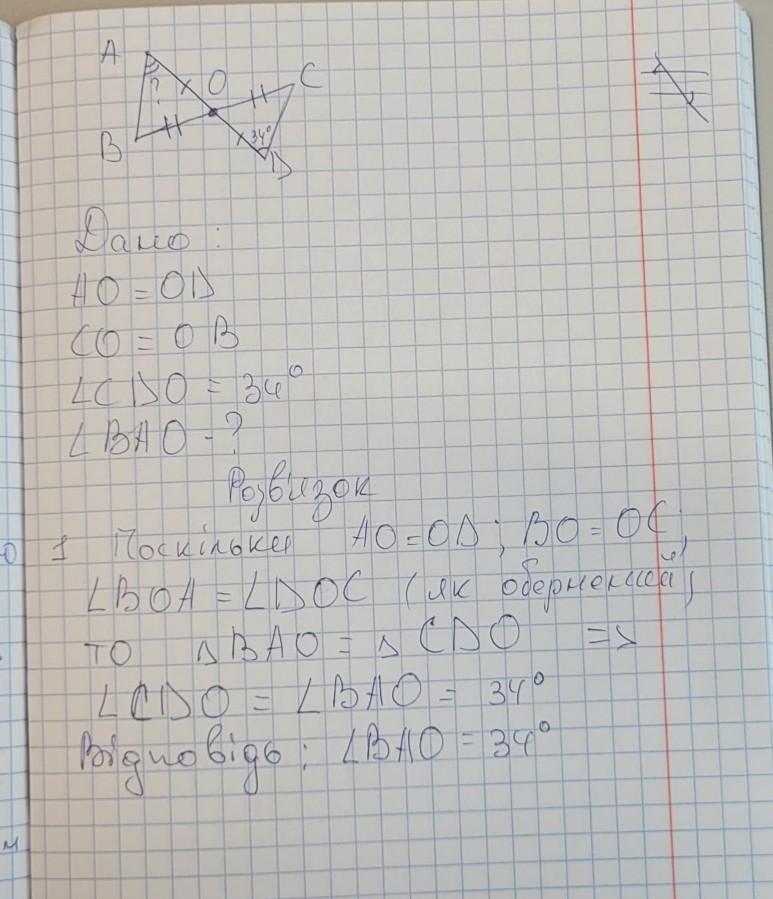 A
O
C
?
B
34°
D
Дано:
AO = OD
CO = OB
∠CDO = 34°
∠BAO - ?
Розвизок
1 Поскільки AO = OD; BO = OC;
∠BOA = ∠DOC (як
то △BAO = △CDO =>
∠CDO = ∠BAO = 34°
Відповідь: ∠BAO = 34°